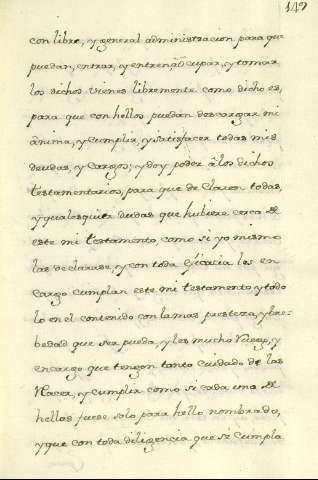 147
con libre, y general administracion para que
puedan, entrar, y entren, cupar, y tomar
los dichos vienes libremente como dicho es,
para que con hellos puedan descargar mi
ánima, y cumplir, y satisfacer todas mis
deudas, y cargos; y doy poder á los dichos
testamentarios, para que declaren todas,
y qualesquier dudas que hubiere cerca de
este mi testamento, como si yo mismo
las declarase, y con toda eficacia les en
cargo cumplan este mi testamento y todo
lo en el contenido con la mas presteza, y bre-
bedad que ser pueda, y les mucho ruego, y
encargo que tengan tanto cuidado de las
Hacer, y cumplir como si cada uno de
hellos fuese solo para hello nombrado,
y que con toda diligencia que se cumpla